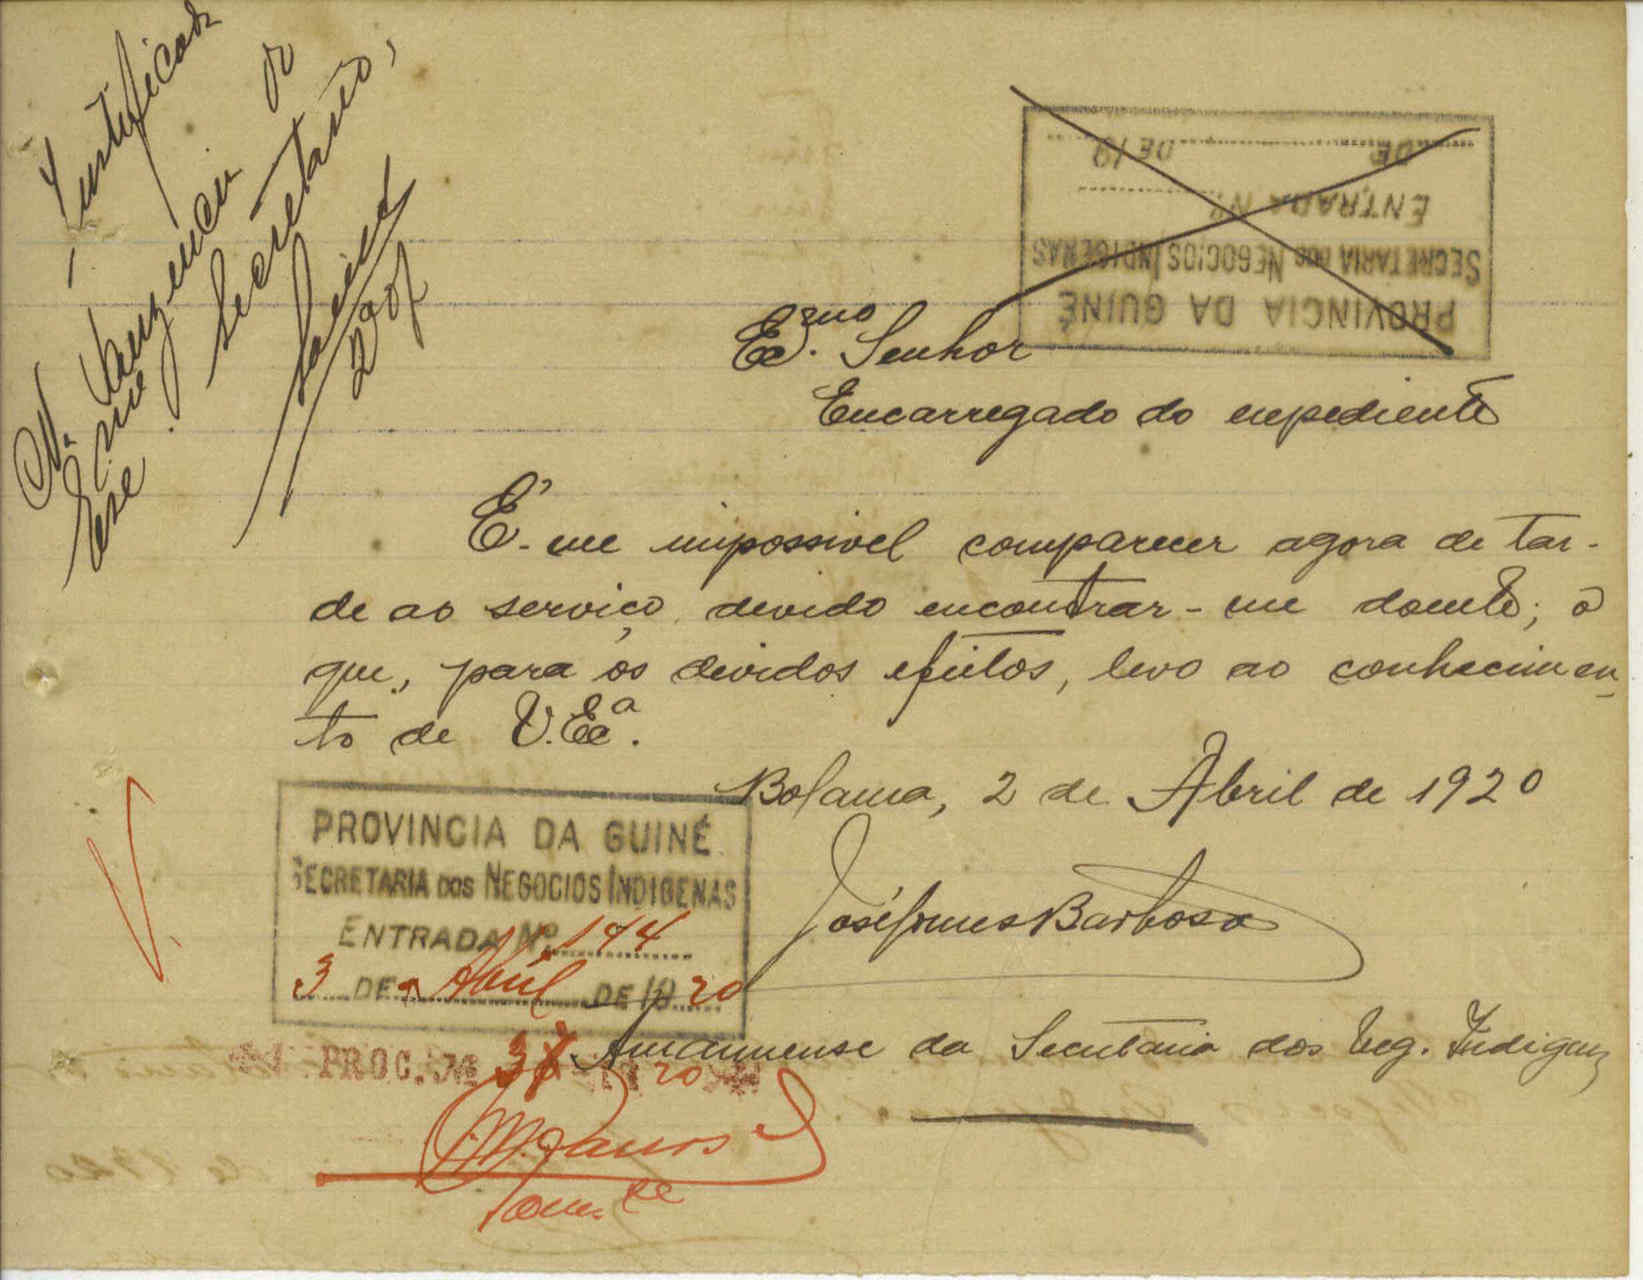 Justificada
Na ausencia do
Secretario,
2 Abr
PROVINCIA DA GUINÉ
SECRETARIA DOS NEGOCIOS INDIGENAS
ENTRADA Nº
DE DE 19
Exmo. Senhor
Encarregado do expediente
É-me impossivel comparecer agora de tar-
de ao serviço, devido encontrar-me doente; o
que, para os devidos efeitos, levo ao conhecimen-
to de V. Exa.
Bolama, 2 de Abril de 1920
José Gomes Barbosa
Amanuense da Secretaria dos Neg. Indigenas
PROVINCIA DA GUINÉ
SECRETARIA DOS NEGOCIOS INDIGENAS
ENTRADA Nº 144
3 DE Abril DE 1920
PROC. Nº 20